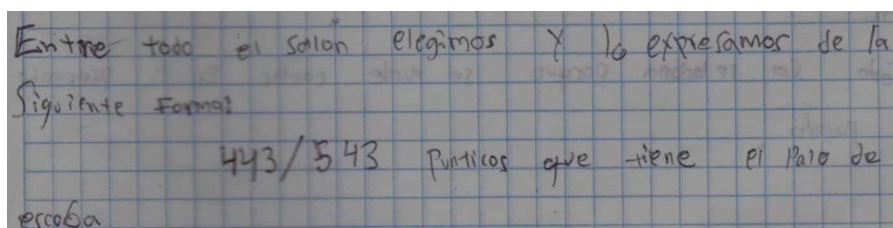 Entre todo el salón elegimos y lo expresamos de la
Siguiente Forma:
443/543 Punticos que tiene el Palo de
escoba